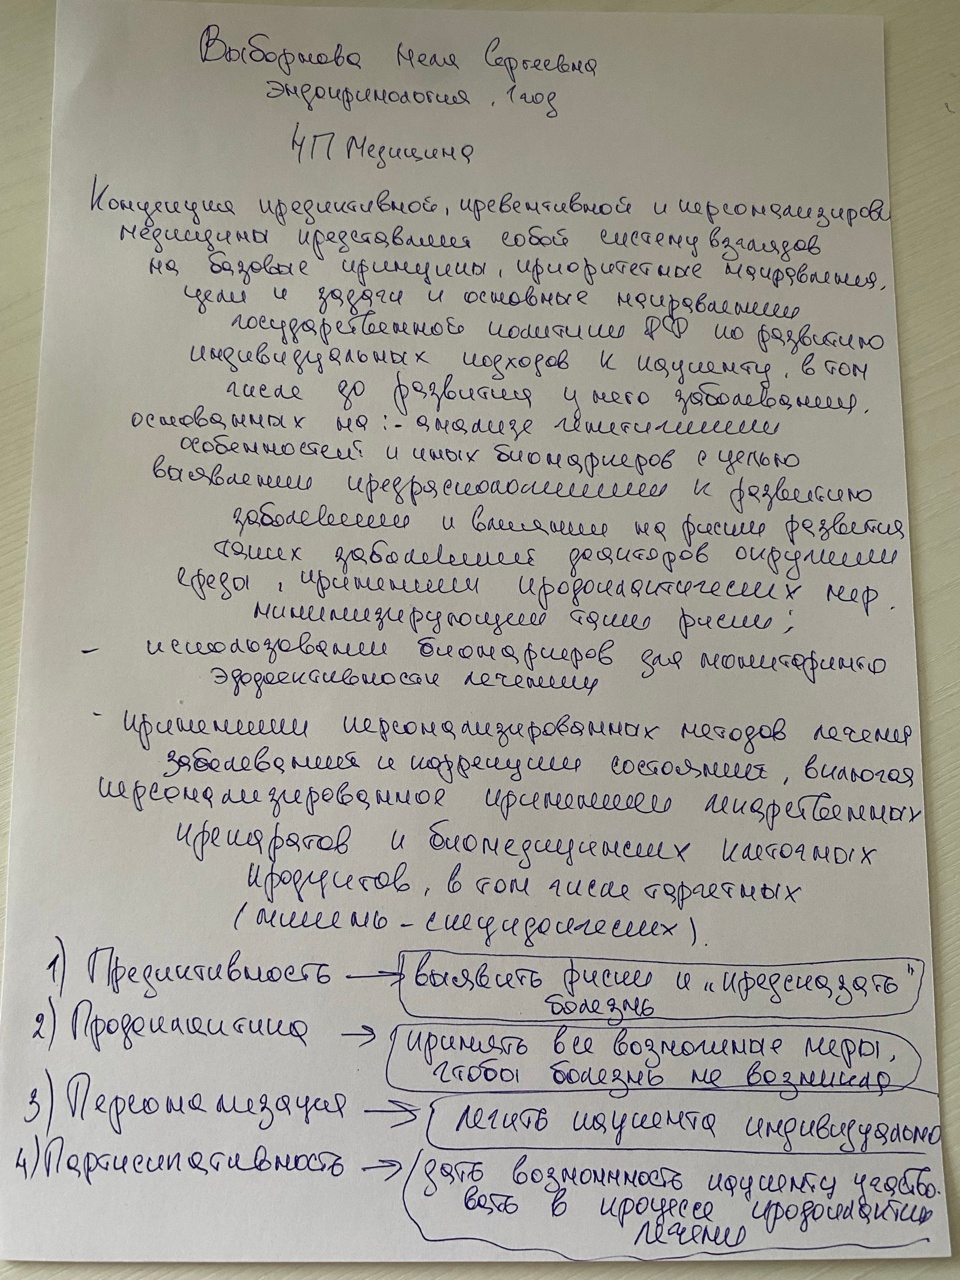 Выборнова Неля Сергеевна
Эндокринология, 1 год
4П Медицина
Концепция предиктивной, превентивной и персонализирова
медицины представляет собой систему взглядов
на базовые принципы, приоритетные направления,
цели и задачи и основные направления
государственной политики РФ по развитию
индивидуальных подходов к пациенту, в том
числе до развития у него заболевания,
основанных на: - анализе генетических
особенностей и иных биомаркеров с целью
выявления предрасположенности к развитию
заболевания и влияния на риски развития
таких заболеваний факторов окружения
среды, применении профилактических мер,
минимизирующий такие риски;
- использовании биомаркеров для мониторинга
эффективности лечения
- применении персонализированных методов лечения
заболеваний и коррекции состояний, включая
персонализированное применение лекарственных
препаратов и биомедицинских клеточных
продуктов, в том числе таргетных
(мишень-специфических).
1) Предиктивность → выявить риски и "предсказать"
болезнь
2) Профилактика → принять все возможные меры,
чтобы болезнь не возникла
3) Персонализация → лечить пациента индивидуально
4) Партисипативность → дать возможность пациенту участво-
вать в процессе профилактики
лечения